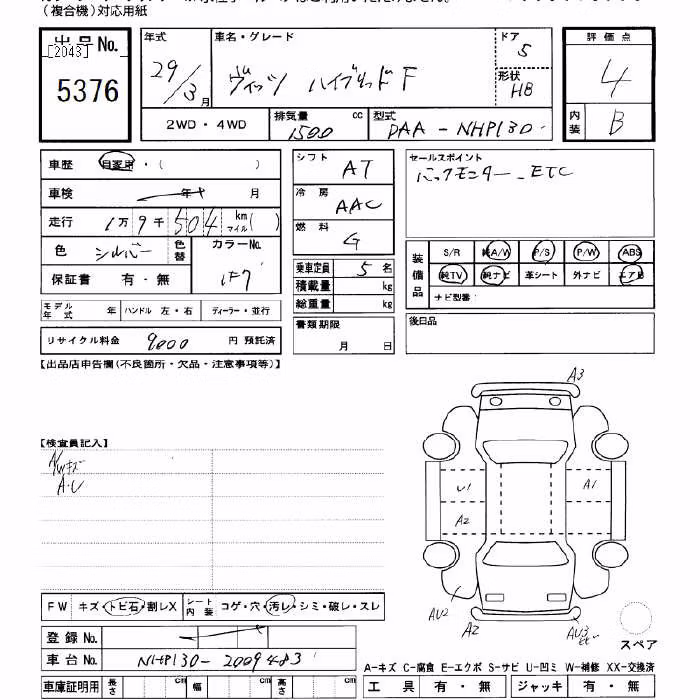 (複合機)対応用紙
出品No.
[2043]
5376
年式
29/3月
車名・グレード
ヴィッツ ハイブリッドF
ドア
5
形状
HB
評価点
4
内装
B
2WD・4WD
排気量 1500 cc
型式
DAA-NHP130
車歴 自家用・( )
車検 年 月
走行 1万9千504 km マイル( )
色 シルバー
色替
カラーNo.
1F7
保証書 有・無
シフト AT
冷房 AAC
燃料 G
乗車定員 5名
積載量 kg
総重量 kg
書類期限
月 日
セールスポイント
バックモニター ETC
装備品
S/R 純A/W P/S P/W ABS
純TV 純ナビ 革シート 外ナビ エアB
ナビ型番
後日品
モデル年式 年
ハンドル 左・右
ディーラー・並行
リサイクル料金 9000 円 預託済
【出品店申告欄(不良箇所・欠品・注意事項等)】
【検査員記入】
A/Wキズ
A・U
A3
U1
A1
A2
AU2
A2
AU3
スペア
FW キズ・トビ石・割レX
シート内装 コゲ・穴・汚レ・シミ・破レ・スレ
登録No.
車台No. NHP130-2009483
車庫証明用 長さ cm 幅 cm 高さ cm
A-キズ C-腐食 E-エクボ S-サビ U-凹ミ W-補修 XX-交換済
工具 有・無 ジャッキ 有・無